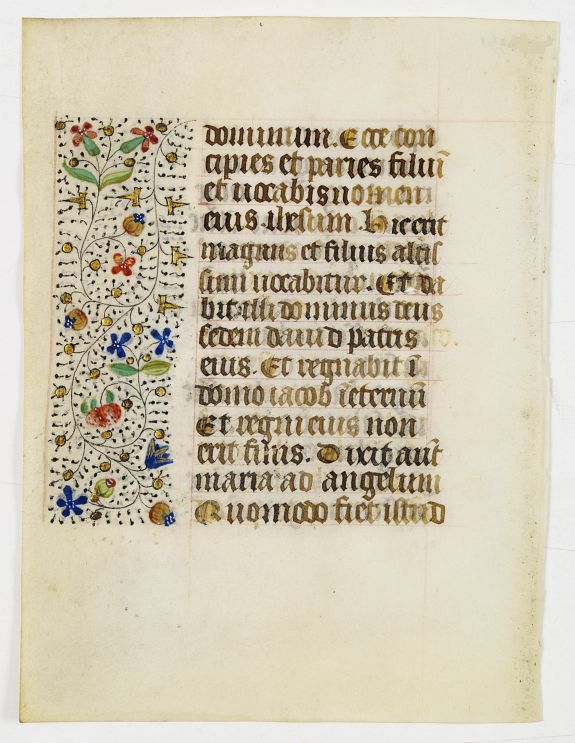 dominum. Ecce con
cipies et paries filiū
et uocabis nomen
eius ihesum. Hic erit
magnus et filius altis
simi uocabitur. Et da
bit illi dominus deus
sedem dauid patris
eius. Et regnabit ī
domo iacob īeternū
Et regni eius non
erit finis. Dixit aūt
maria ad angelum
Quomodo fiet istud